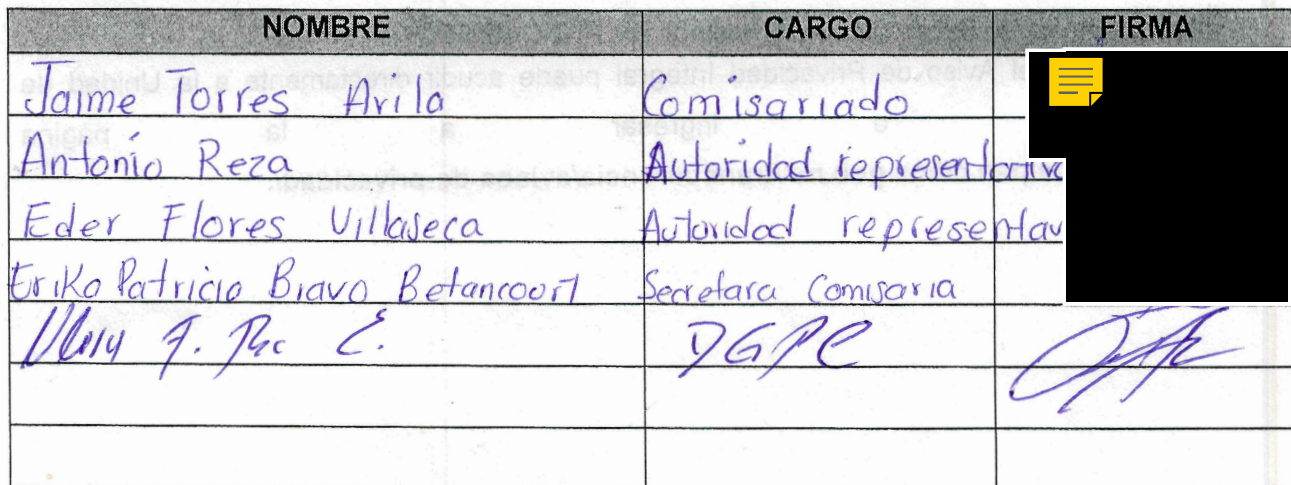 NOMBRE CARGO FIRMA
Jaime Torres Avila Comisariado
Antonio Reza Autoridad representativa
Eder Flores Villaseca Autoridad representav
Erika Patricia Bravo Betancourt Secretara Comisaria
F. E. DGPC